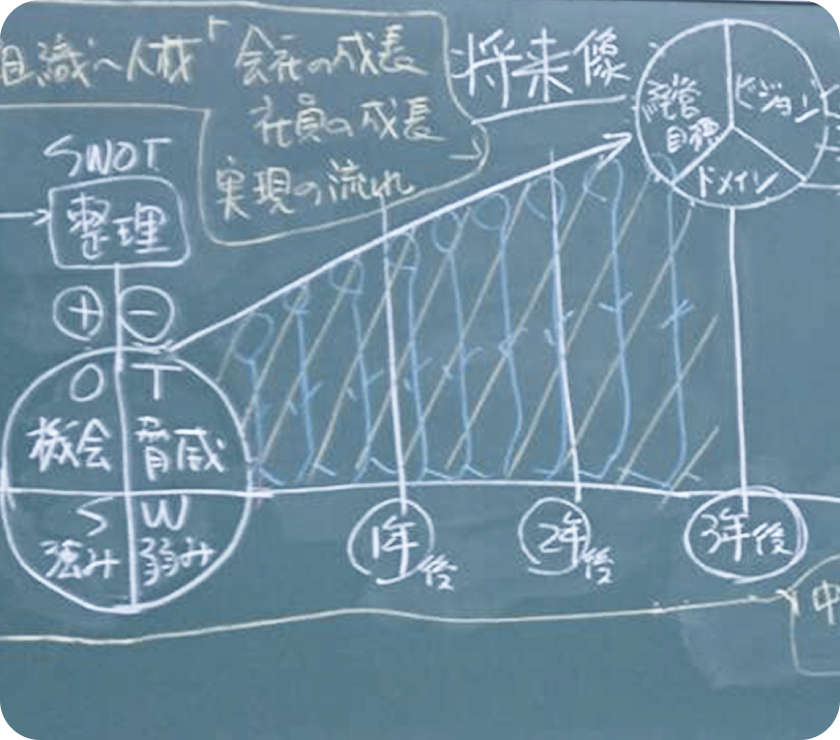 組織へ人材
「会社の成長
社員の成長
実現の流れ
将来像
経営
目標
ビジョン
ドメイン
SWOT
整理
+
-
O
T
機会
脅威
S
W
強み
弱み
1年後
2年後
3年後
中